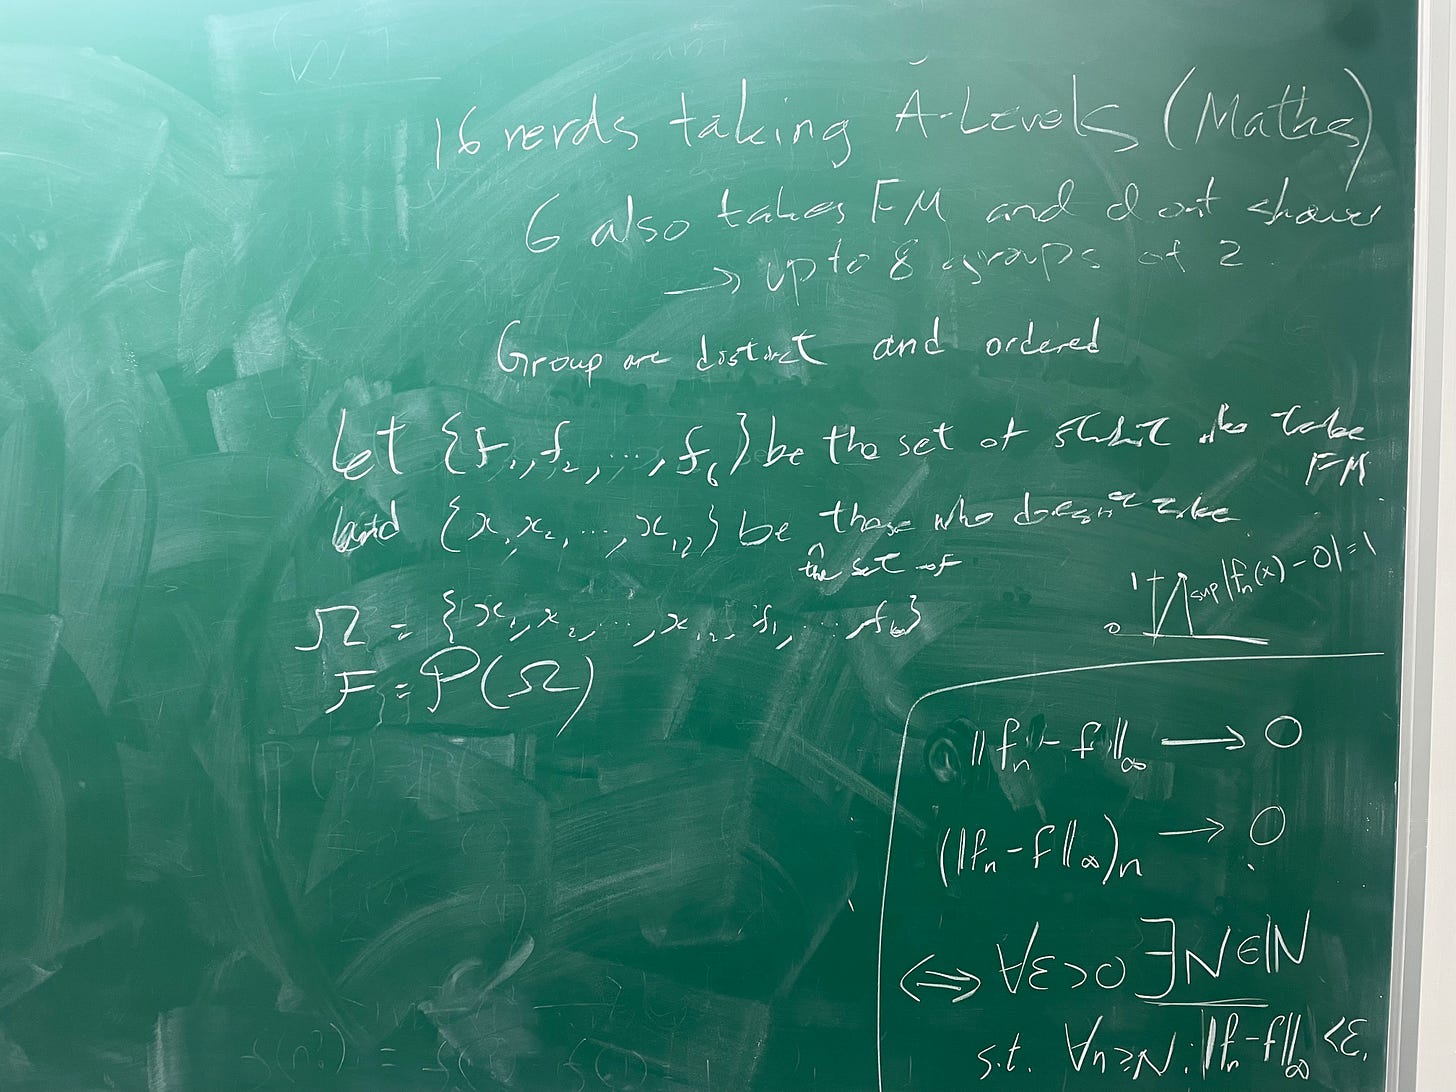 16 nerds taking A-Levels (Maths)
6 also takes FM and dont shower
→ up to 8 groups of 2
Group are distinct and ordered
Let {f₁, f₂, ..., f₆} be the set of who take
FM
and {x₁, x₂, ..., x₁₂} be those who doesn't take
the set of
Ω = {x₁, x₂, ..., x₁₂, f₁, ..., f₆}
F = P(Ω)
1 sup|fₙ(x) - 0| = 1
0
||fₙ - f||∞ → 0
(||fₙ - f||∞)ₙ → 0
⟺ ∀ε > 0 ∃N ∈ ℕ
s.t. ∀n ≥ N: ||fₙ - f||∞ < ε.